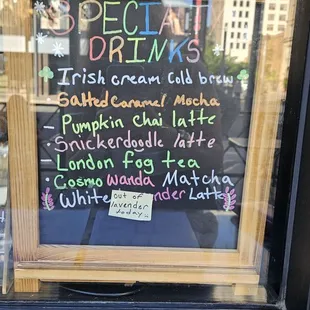 SPECIALTY
DRINKS
Irish cream Cold brew
Salted Caramel Mocha
Pumpkin Chai latte
Snickerdoodle latte
London Fog tea
Cosmo Wanda Matcha
White nder Latte
out of
lavender
today